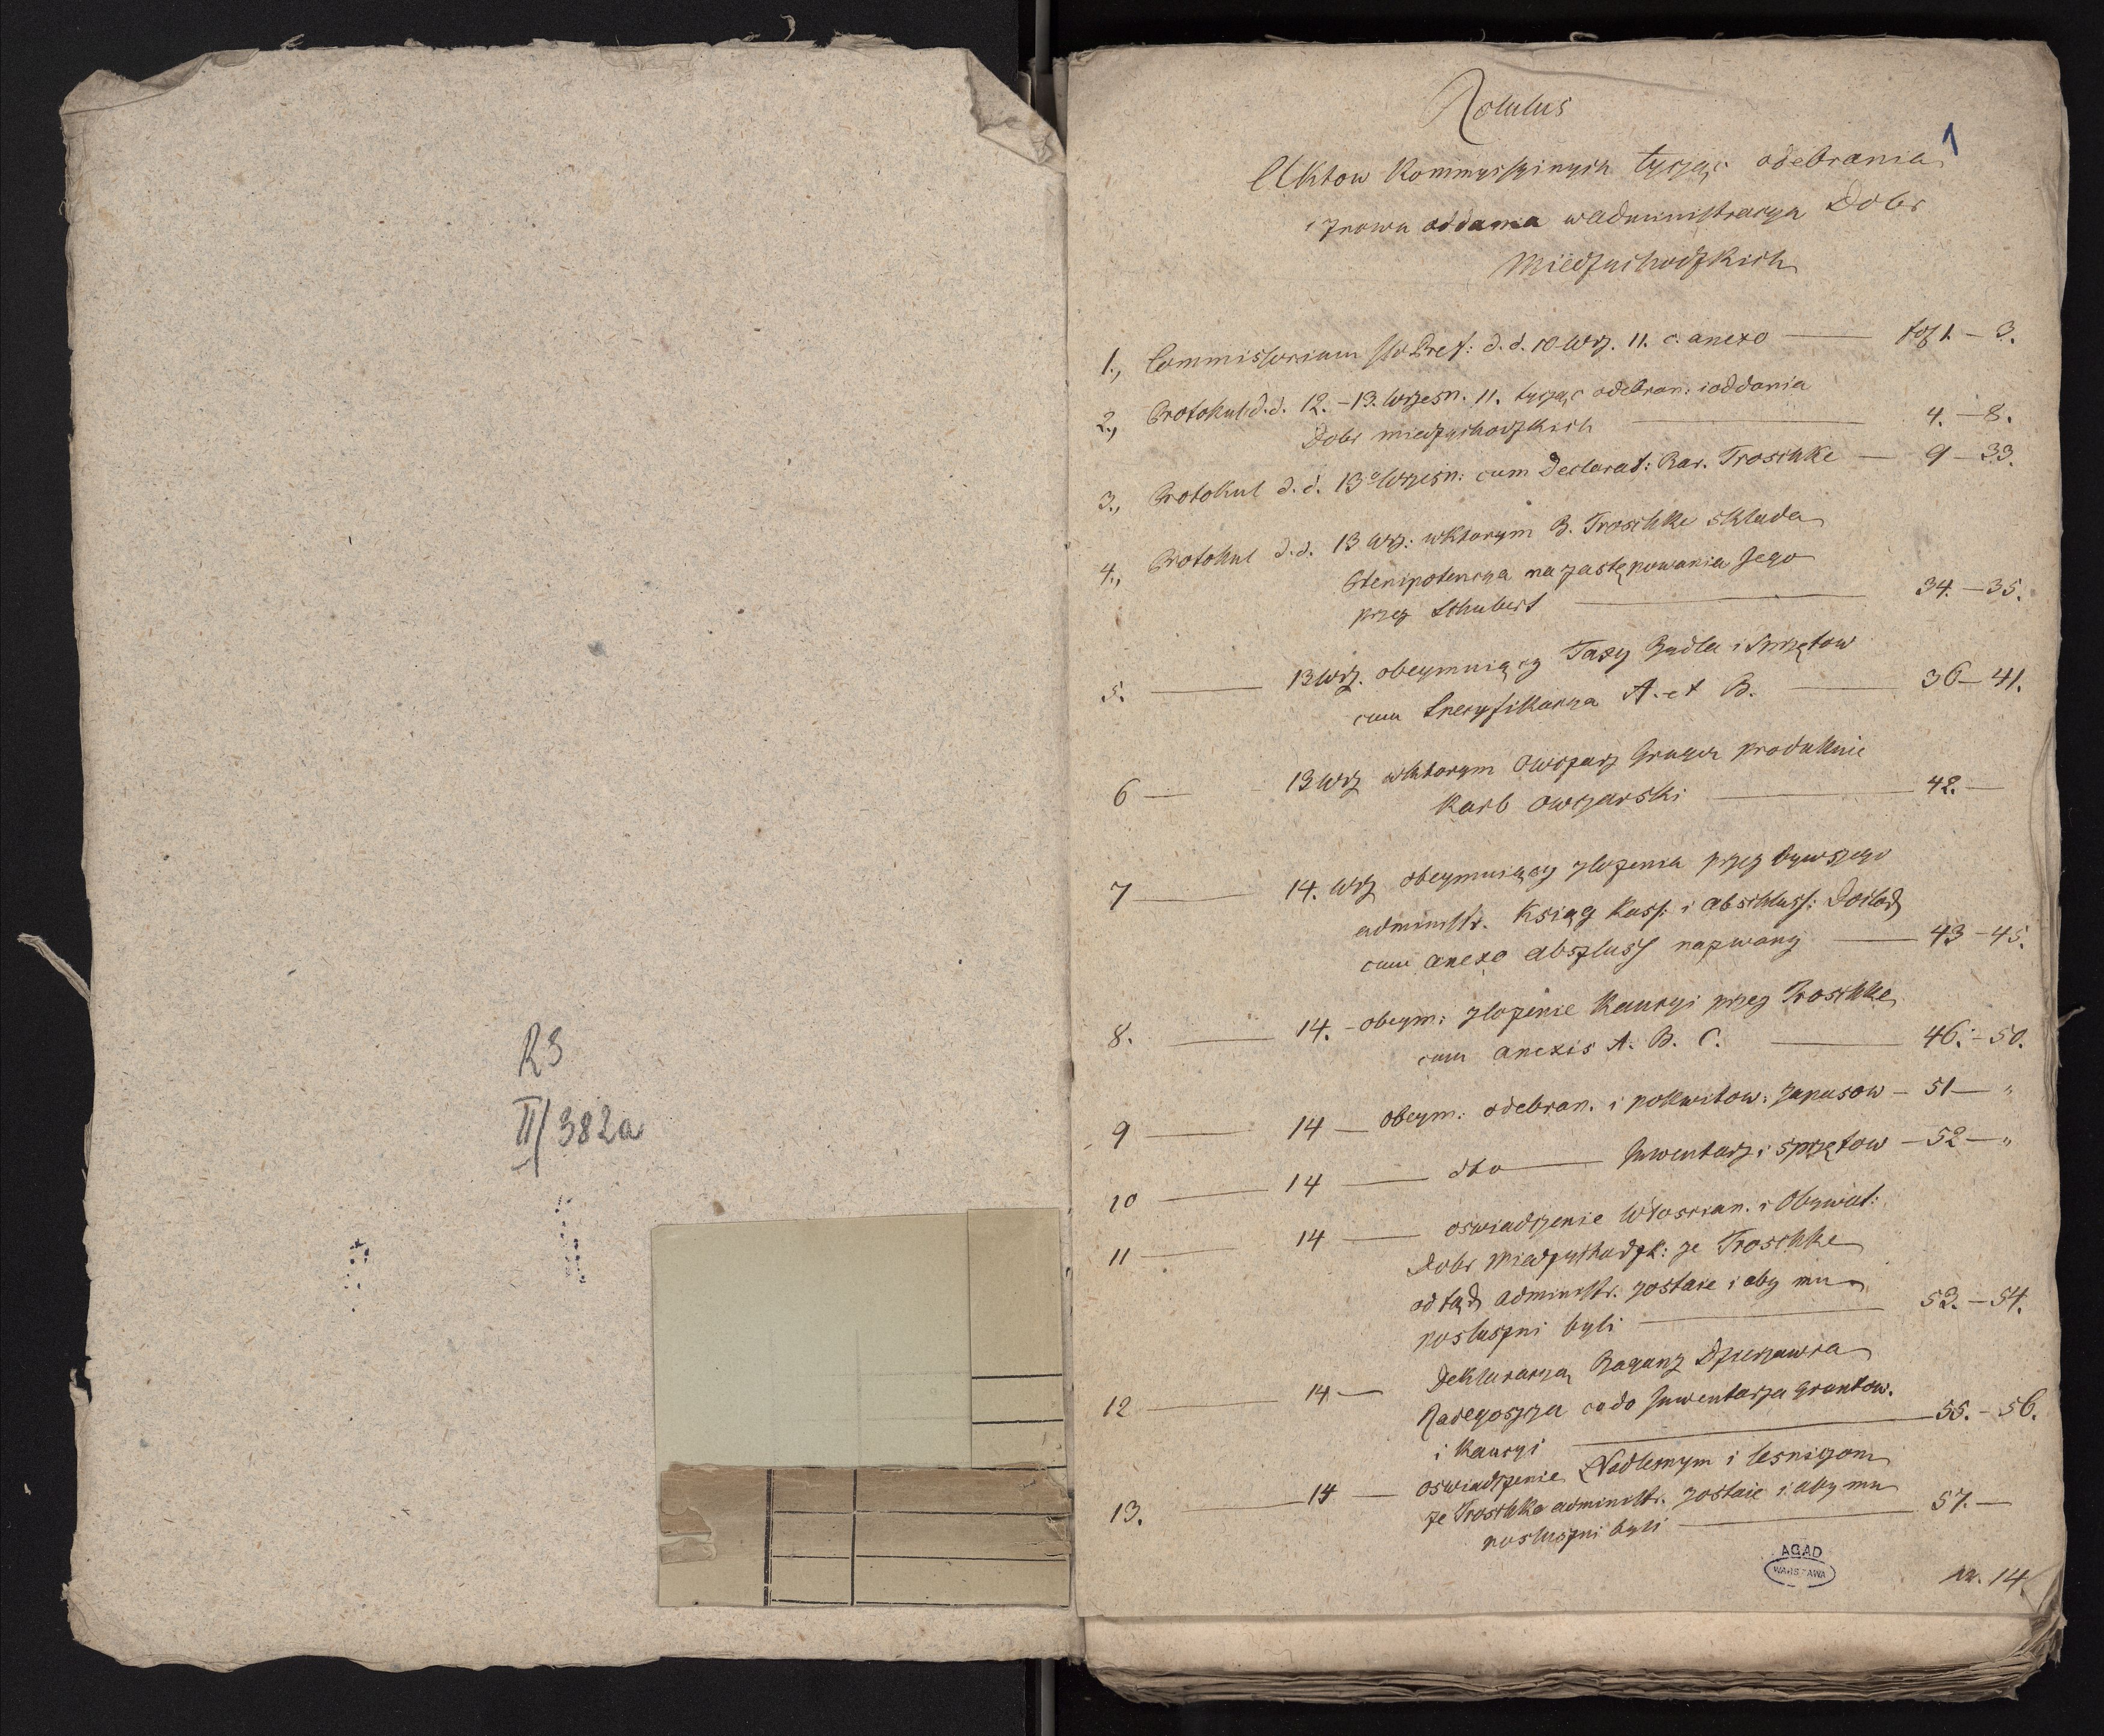 R3
II/382a
Rotulus
1
Aktow Kommyssyinych tycząc odebrania
i znowu oddania w administracyą Dobr
Międzuchodzkich
1., Commissorium JW Pref: d. d. 10 Wrz. 11. c. anexo — fog 1. — 3.
2., Protokul d. d. 12. – 13. Wrzesn. 11. tycząc odebran: i oddania
Dobr międzychodzkich — 4. — 8.
3., Protokul d. d. 13 Wrzesn: cum Declarat: Bar. Troschke — 9 — 33.
4., Protokul d. d. 13 Wrz: w ktorym B. Troschke sklada
Plenipotencya na zastępowania Jego
przez Schubert — 34. — 35.
5. — 13 Wrz. obeymuiący Taxy Bydla i Sprzętow
cum Specyfikacya A. et B. — 36 — 41.
6 — 13 Wrz w ktorym Owczarz Gruger produkuie
Karb owczarski — 42. —
7 — 14. Wrz obeymuiący zlozenia przez bywszego
administr. Ksiąg Kass: i abschluss:
cum anexo abszluss nazwany — 43 – 45.
8. — 14. – obeym: zlozenie Kaucyi przez Troschke
cum anexis A. B. C. — 46. – 50.
9 — 14 — obeym: odebran. i pokwitow: zapasow — 51 — "
10 — 14 — dto — Inwentarz i sprzętow — 52 — "
11 — 14 — oswiadczenie Włoscian. i Obywat:
Dobr Międzychodzk: ze Troschke
od tąd administr. zostaie i aby mu
posluszni byli — 53. — 54.
12 — 14 — Deklaracya Baganz Dzierzawca
Radegoszcza co do Inwentarza gruntow.
i Kaucyi — 55. – 56.
13. — 14 — oswiadczenie Nadlesnym i lesniczom
ze Troschke administr. zostaie i aby mu
posluszni byli — 57. —
AGAD
WARSZAWA
14